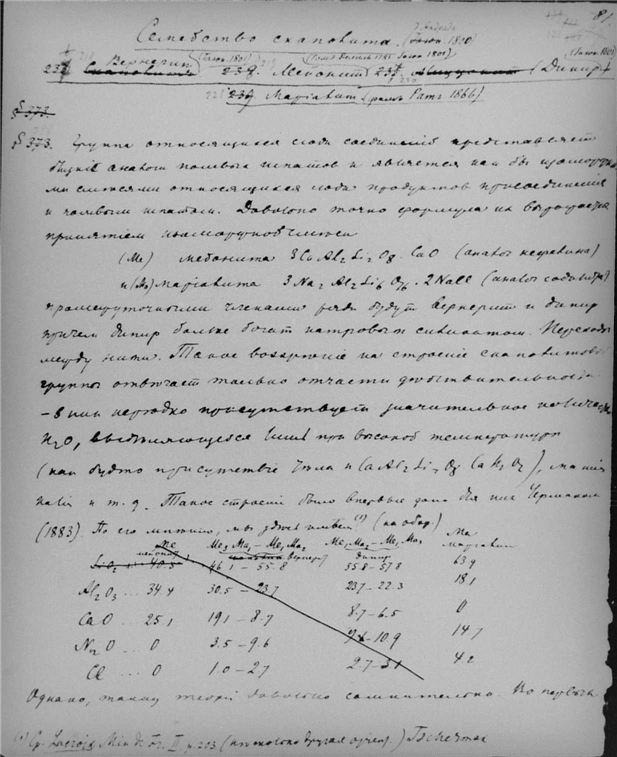 81.
Семейство скаполита. (1800)
Вернерит 1801)
237 239. Мейонит 237 (Дипир)
239 Мариалит (Рат 1866)
§ 373.
§ 373. Группа относящихся сюда соединений представляет
аналоги полевых шпатов и является как бы
относящихся сюда продуктов присоединения
к полевым шпатам. Довольно точно формула их выражается
принятием изоморфной смеси
(Me) мейонита 3CaAl2Si2O8. CaO (аналог нефелина)
и (Ma) мариалита 3Na2Al2Si6O16. 2NaCl (аналог содалита)
промежуточными членами ряда будут вернерит и дипир
причем дипир более богат натровым силикатом. Переходы
между ними. Такое воззрение на строение скаполитовой
группы отвечает только отчасти действительности
- в них нередко присутствует значительное количество
H2O, выделяющейся лишь при высокой температуре
(как будто присутствие CaAl2Si2O8 CaH2O2),
и т. д. Такое строение было впервые дано для них Чермаком
(1883). По его мнению, мы здесь имеем (1) (на обор.)
Me мейонит Me3Ma1 – Me1Ma2 вернерит Me1Ma2 – Me1Ma3 дипир Ma мариалит
SiO2 .. 40.5 46.1 – 55.8 55.8 – 57.8 63.9
Al2O3 ... 34.4 30.5 – 23.7 23.7 – 22.3 18.1
CaO ... 25.1 19.1 – 8.7 8.7 – 6.5 0
Na2O ... 0 3.5 – 9.6 9.6 – 10.9 14.7
Cl ... 0 1.0 – 2.7 2.7 – 3.1 4.2
Однако, такая теория довольно сомнительна. Во первых
(1) Ср. Lacroix Min. de Fr. II p. 203 (несколько другая) Tschermak